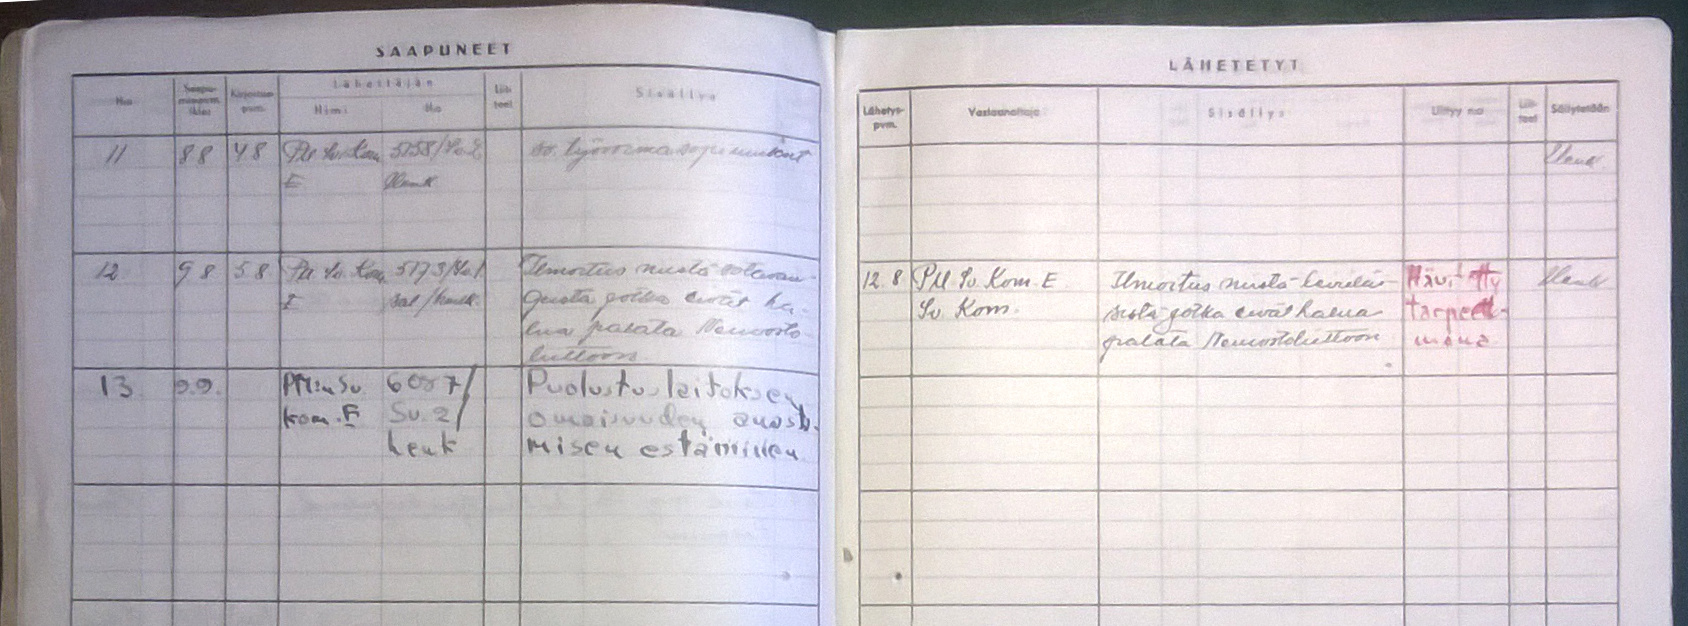 SAAPUNEET
N:o
Saapu-
mispvm.
Kirjelmän
pvm.
Lähettäjän
Nimi
N:o
Liit-
teet
Sisällys
11
8 8
4 8
Pll Sv. Kom.
E
5158/Sv.2
Henk
sv. työvoimasopimukset
12
9 8
5 8
Pll Sv. Kom.
E
5173/Sv.1
sal/henk.
Ilmoitus niistä sotavan-
geista jotka eivät ha-
lua palata Neuvosto-
liittoon.
13.
9.9.
PM:n Sv.
kom. E
6087/
Sv. 2/
henk
Puolustuslaitoksen
omaisuuden anast-
misen estäminen
LÄHETETYT
Lähetys-
pvm.
Vastaanottaja
Sisällys
Liittyy n:o
Liit-
teet
Säilytetään
Henk.
12. 8
Pll Sv. Kom. E.
Sv Kom.
Ilmoitus niistä
sistä jotka eivät halua
palata Neuvostoliittoon
Hävitetty
tarpeet-
mana
Henk